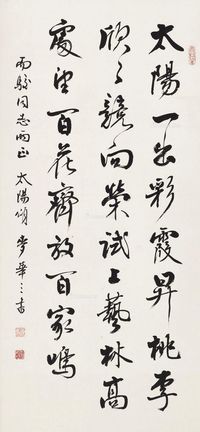 太陽一出彩霞昇桃李
欣々競向榮試上藝林高
處望百花齊放百家鳴
同志 正 太陽頌 華 書